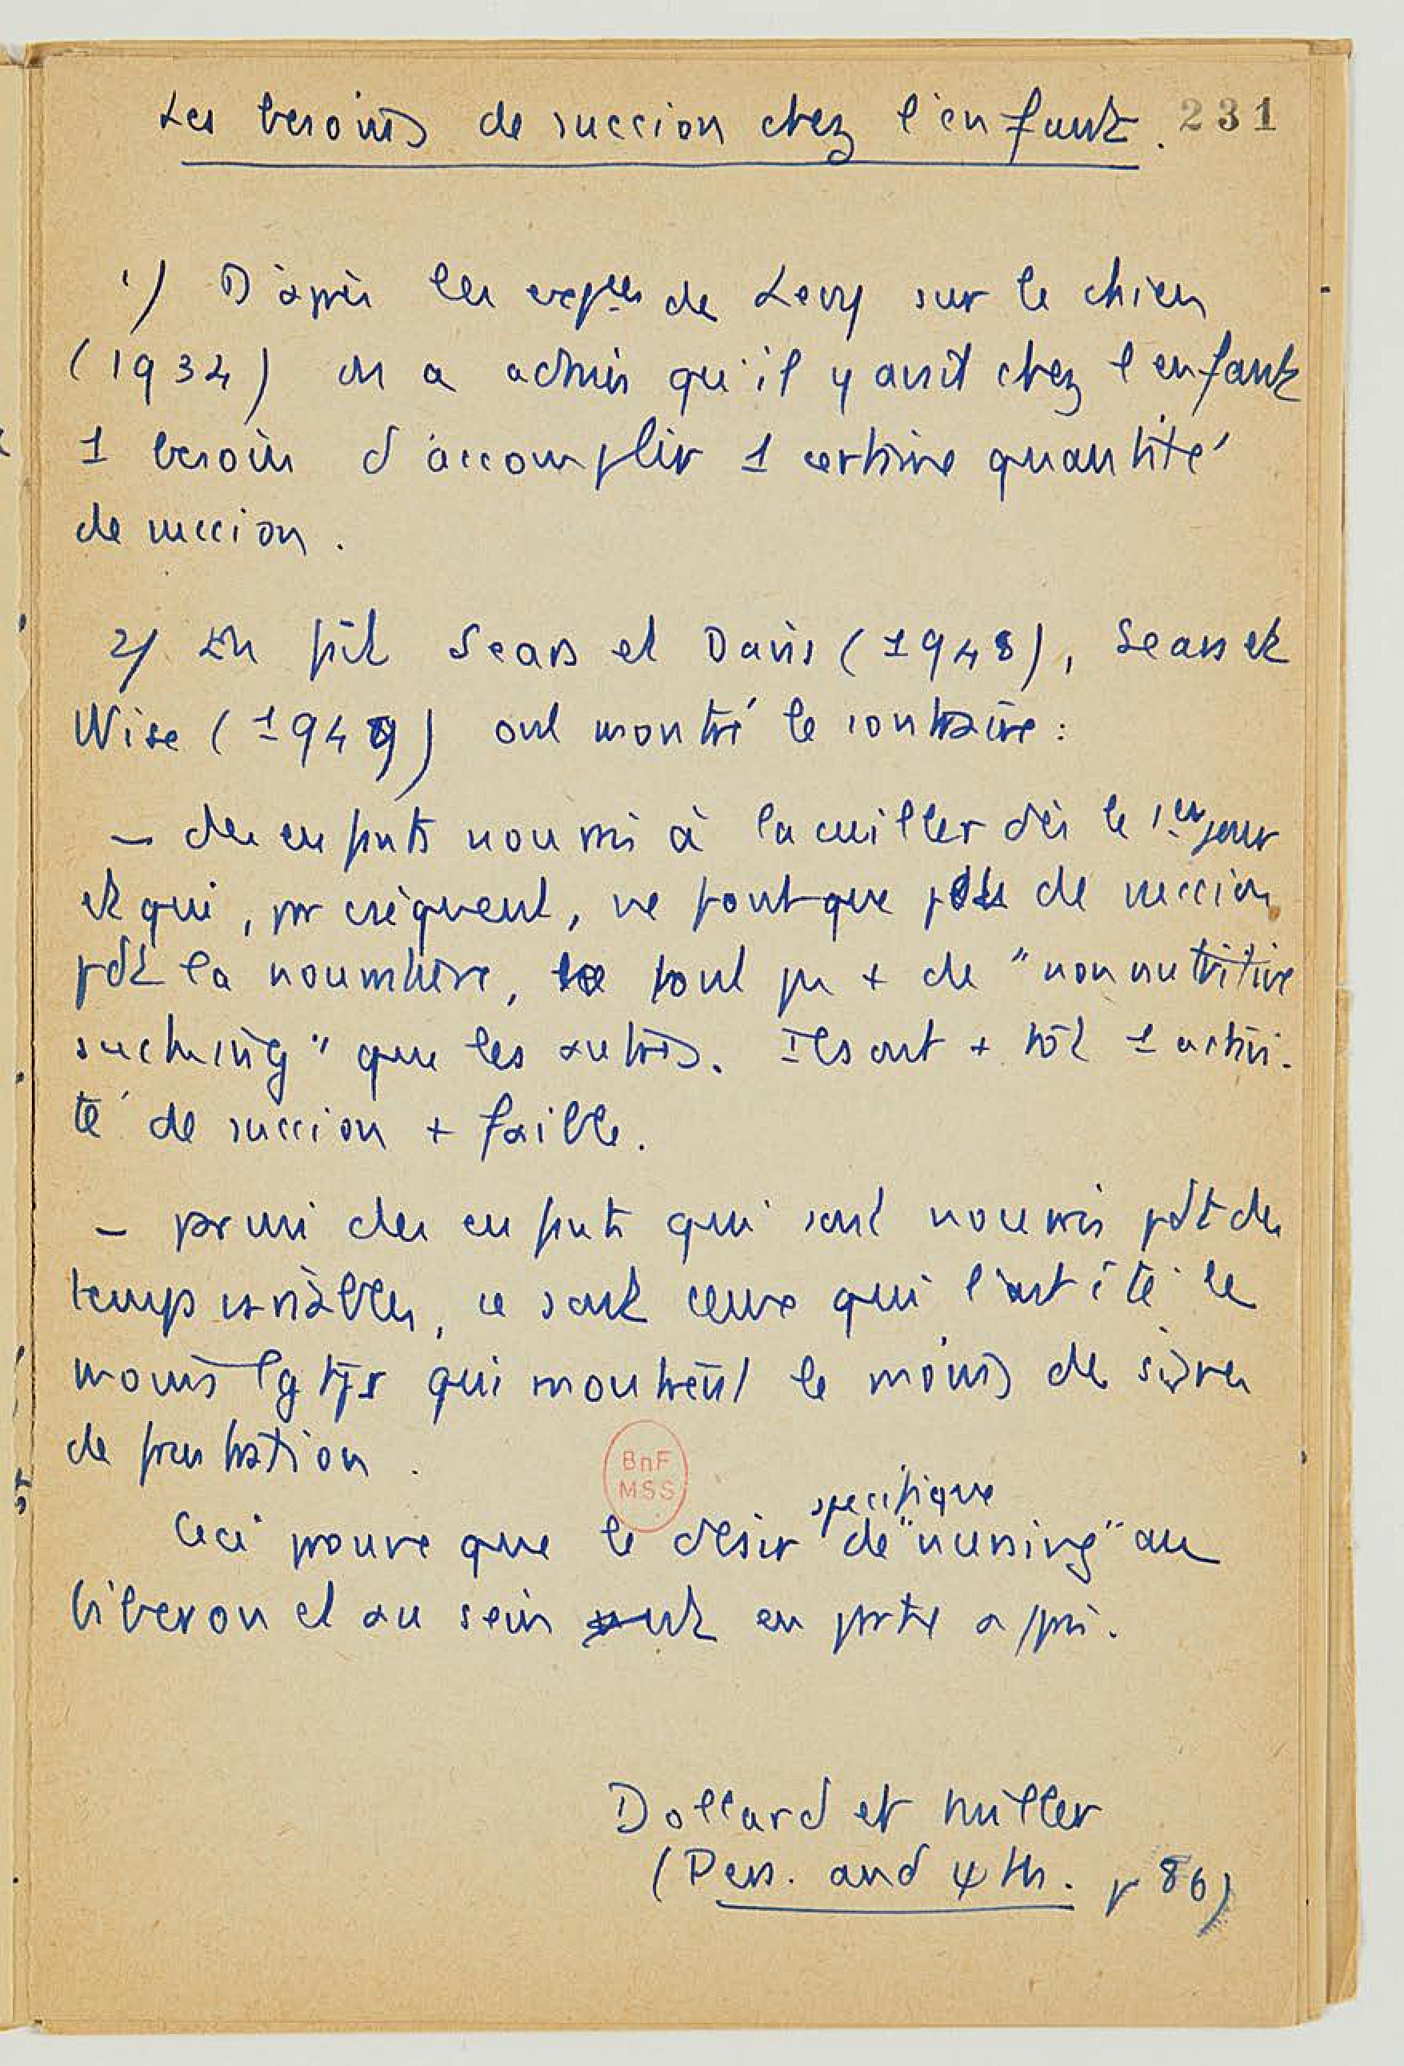 Les besoins de succion chez l'enfant. 231
1) D'après les expces de Levy sur le chien
(1934) on a admis qu'il y avait chez l'enfant
1 besoin d'accomplir 1 certaine quantité
de succion.
2/ En fait Sears et Davis (1948), Sears et
Wise (1949) ont montré le contraire :
- des enfants nourris à la cuiller dès le 1er jour
et qui, pr cséquent, ne font que peu de succion
pdt la nourriture, font pu + de "non nutritive
sucking" que les autres. Ils ont + tôt 1 activi-
té de succion + faible.
- parmi des enfants qui sont nourris pdt des
temps variables, ce sont ceux qui l'ont été le
moins lgtps qui montrent le moins de
de frustration.
Ceci prouve que le désir spécifique de "nursing" au
biberon et au sein est en partie appris.
Dollard et Miller
(Pers. and ψ th. p 86)
BnF
MSS